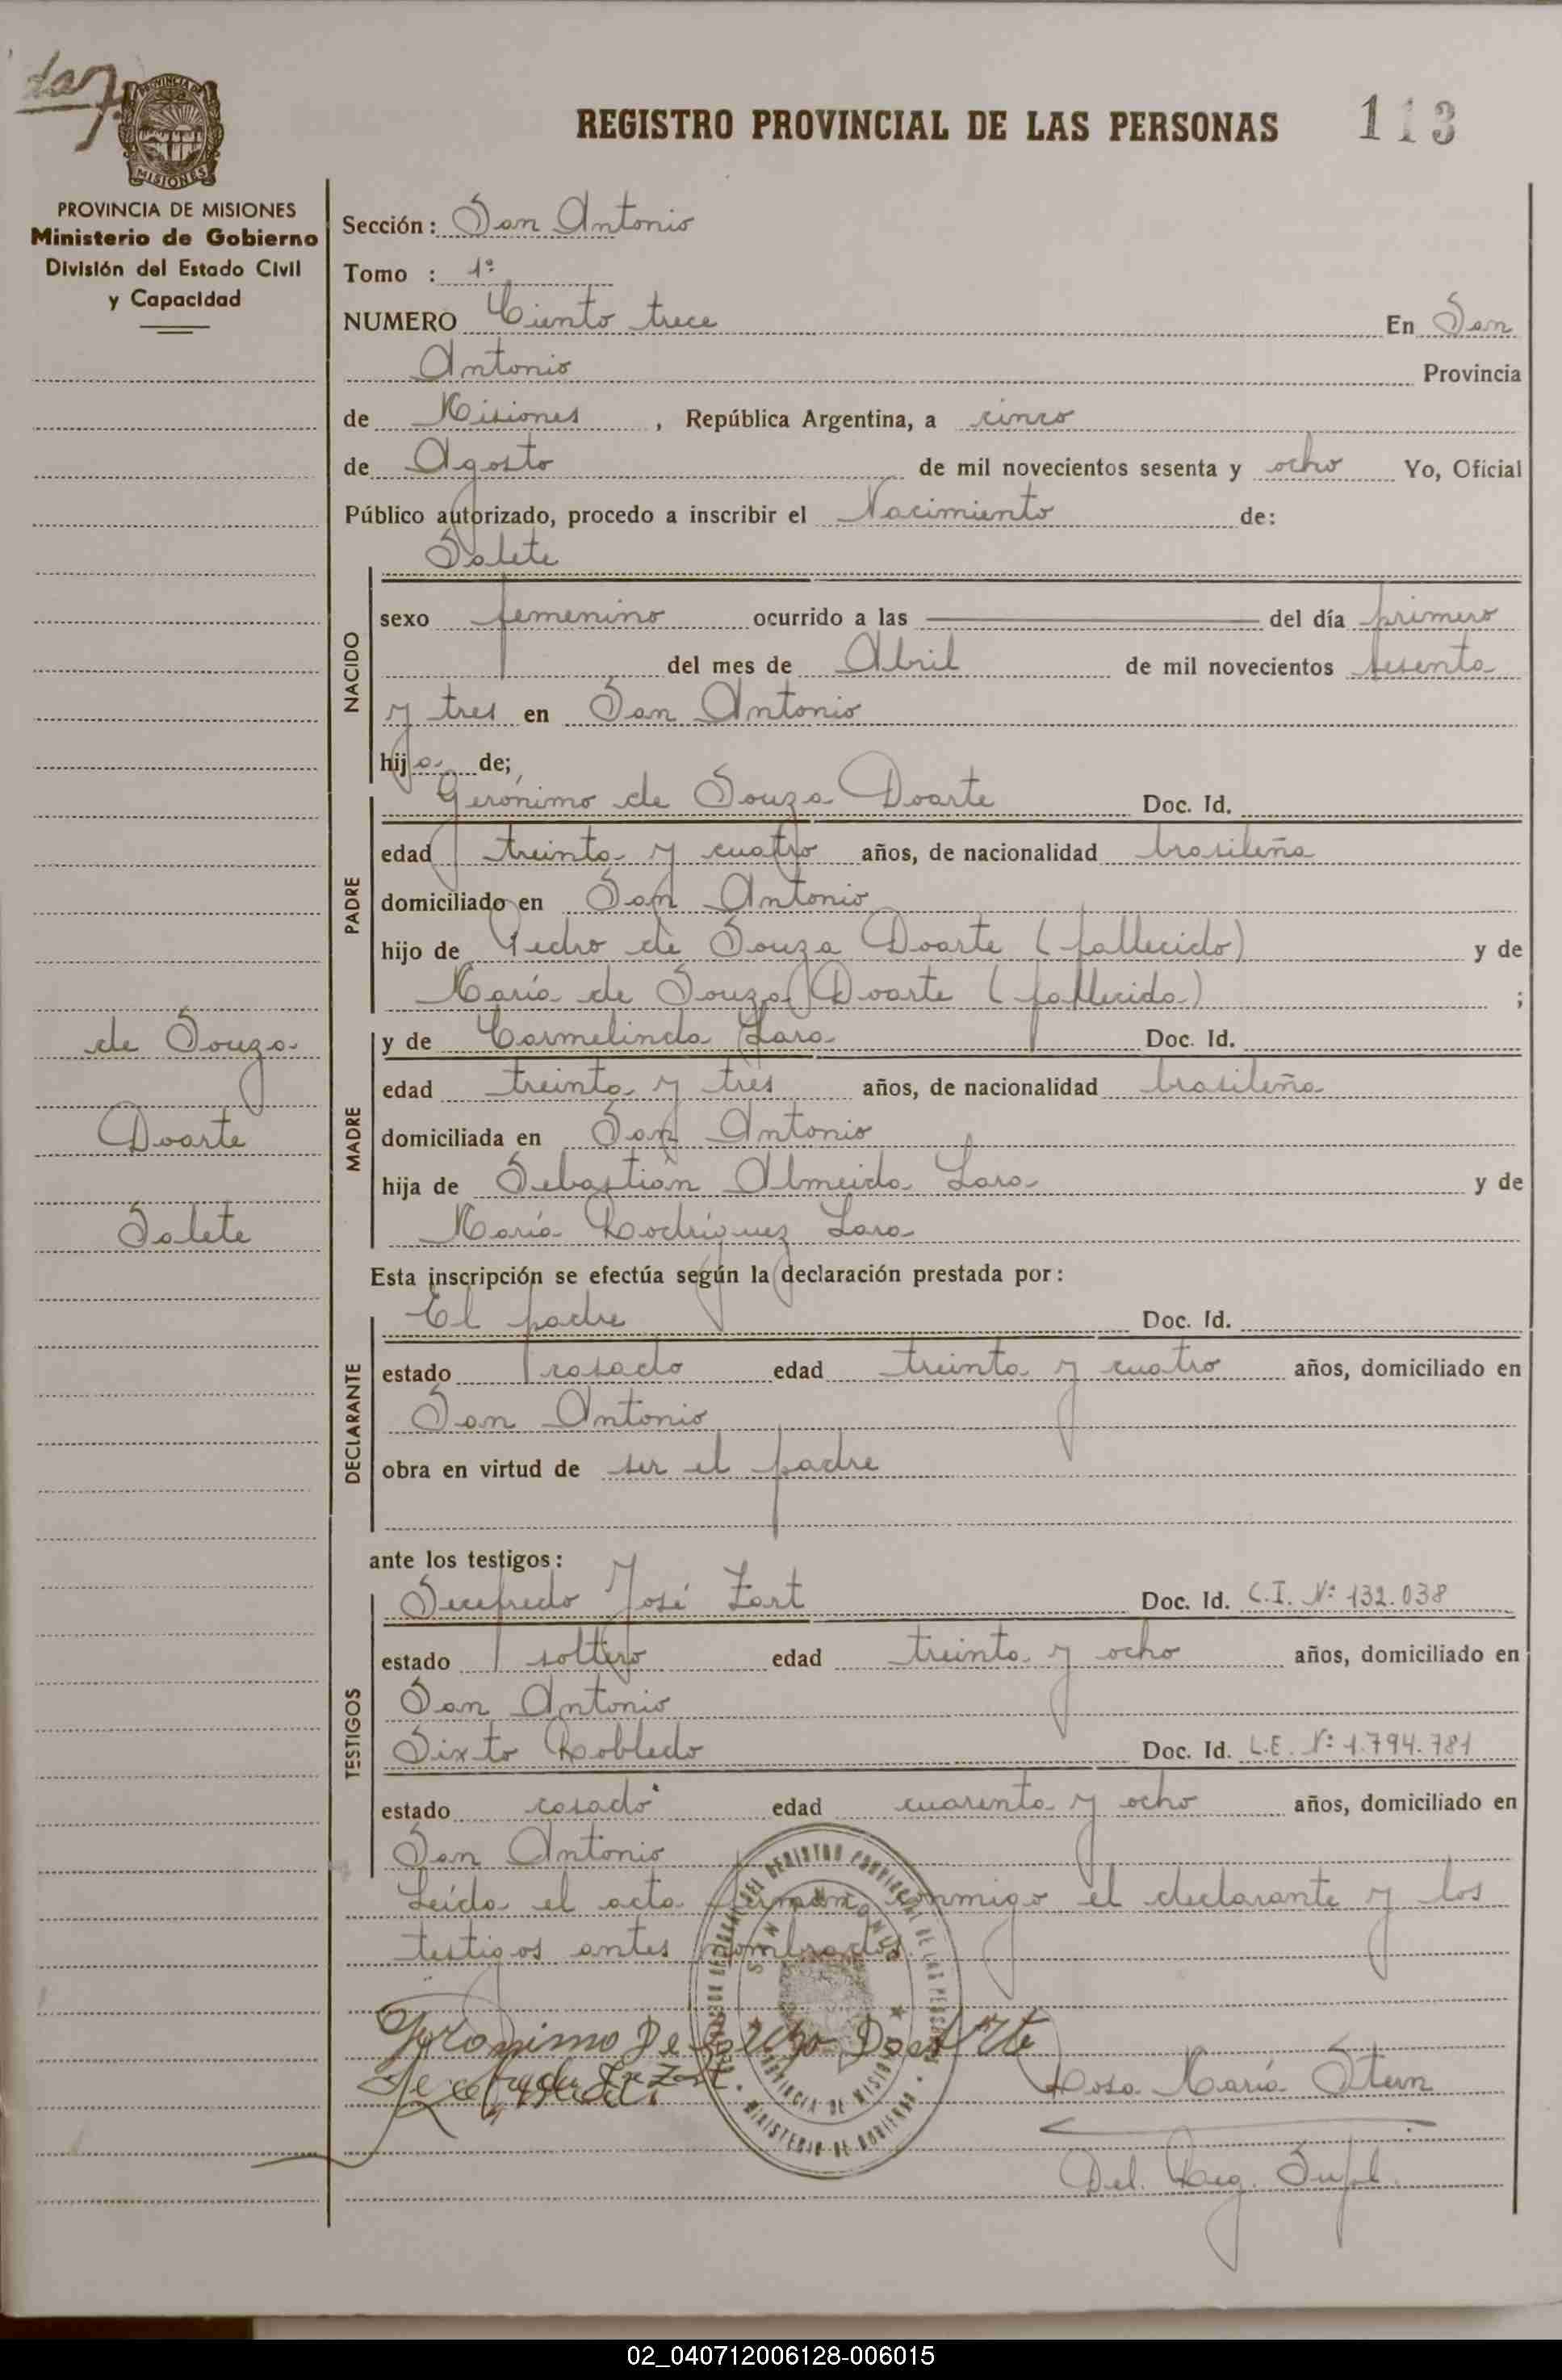 da 7.
PROVINCIA DE MISIONES
REGISTRO PROVINCIAL DE LAS PERSONAS 113
PROVINCIA DE MISIONES
Ministerio de Gobierno
División del Estado Civil
y Capacidad
Sección: San Antonio
Tomo : 1º
NUMERO Ciento trece En San
Antonio Provincia
de Misiones , República Argentina, a cinco
de Agosto de mil novecientos sesenta y ocho Yo, Oficial
Público autorizado, procedo a inscribir el Nacimiento de:
NACIDO
Salete
sexo femenino ocurrido a las del día primero
del mes de Abril de mil novecientos sesenta
y tres en San Antonio
hija de;
PADRE
Gerónimo de Souza Doarte Doc. Id.
edad treinta y cuatro años, de nacionalidad brasileña
domiciliado en San Antonio
hijo de Pedro de Souza Doarte (fallecido) y de
María de Souza Doarte (fallecida) ;
MADRE
y de Carmelinda Lara Doc. Id.
edad treinta y tres años, de nacionalidad brasileña
domiciliada en San Antonio
hija de Sebastián Almeida Lara y de
María Rodríguez Lara
de Souza
Doarte
Salete
Esta inscripción se efectúa según la declaración prestada por:
DECLARANTE
El padre Doc. Id.
estado casado edad treinta y cuatro años, domiciliado en
San Antonio
obra en virtud de ser el padre
ante los testigos:
TESTIGOS
Secefredo José Zart Doc. Id. C.I. Nº 132.038
estado soltero edad treinta y ocho años, domiciliado en
San Antonio
Sixto Robledo Doc. Id. L.E. Nº 1.794.781
estado casado edad cuarenta y ocho años, domiciliado en
San Antonio
Leída el acta firman conmigo el declarante y los
testigos antes nombrados.
DEL REGISTRO PROVINCIAL DE LAS PERSONAS
SAN ANTONIO
PROVINCIA DE MISIONES
MINISTERIO DE GOBIERNO
Geronimo De Souza Doarte
Rosa María Stern
Del. Reg. Supl.
02_040712006128-006015